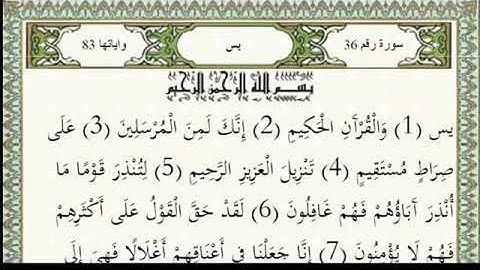 سورة رقم 36
يس
وآياتها 83
بسم الله الرحمن الرحيم
يس (1) وَالْقُرْآنِ الْحَكِيمِ (2) إِنَّكَ لَمِنَ الْمُرْسَلِينَ (3) عَلَى
صِرَاطٍ مُسْتَقِيمٍ (4) تَنْزِيلَ الْعَزِيزِ الرَّحِيمِ (5) لِتُنْذِرَ قَوْمًا مَا
أُنْذِرَ آبَاؤُهُمْ فَهُمْ غَافِلُونَ (6) لَقَدْ حَقَّ الْقَوْلُ عَلَى أَكْثَرِهِمْ
فَهُمْ لَا يُؤْمِنُونَ (7) إِنَّا جَعَلْنَا فِي أَعْنَاقِهِمْ أَغْلَالًا فَهِيَ إِلَى